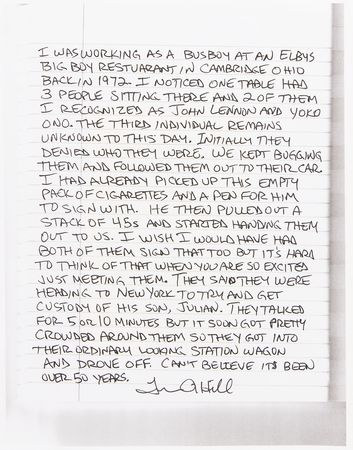 I WAS WORKING AS A BUSBOY AT AN ELBYS
BIG BOY RESTUARANT IN CAMBRIDGE OHIO
BACK IN 1972. I NOTICED ONE TABLE HAD
3 PEOPLE SITTING THERE AND 2 OF THEM
I RECOGNIZED AS JOHN LENNON AND YOKO
ONO. THE THIRD INDIVIDUAL REMAINS
UNKNOWN TO THIS DAY. INITIALLY THEY
DENIED WHO THEY WERE. WE KEPT BUGGING
THEM AND FOLLOWED THEM OUT TO THEIR CAR.
I HAD ALREADY PICKED UP THIS EMPTY
PACK OF CIGARETTES AND A PEN FOR HIM
TO SIGN WITH. HE THEN PULLED OUT A
STACK OF 45s AND STARTED HANDING THEM
OUT TO US. I WISH I WOULD HAVE HAD
BOTH OF THEM SIGN THAT TOO BUT IT'S HARD
TO THINK OF THAT WHEN YOU ARE SO EXCITED
JUST MEETING THEM. THEY SAID THEY WERE
HEADING TO NEW YORK TO TRY AND GET
CUSTODY OF HIS SON, JULIAN. THEY TALKED
FOR 5 OR 10 MINUTES BUT IT SOON GOT PRETTY
CROWDED AROUND THEM SO THEY GOT INTO
THEIR ORDINARY LOOKING STATION WAGON
AND DROVE OFF. CAN'T BELIEVE ITS BEEN
OVER 50 YEARS.
Hill